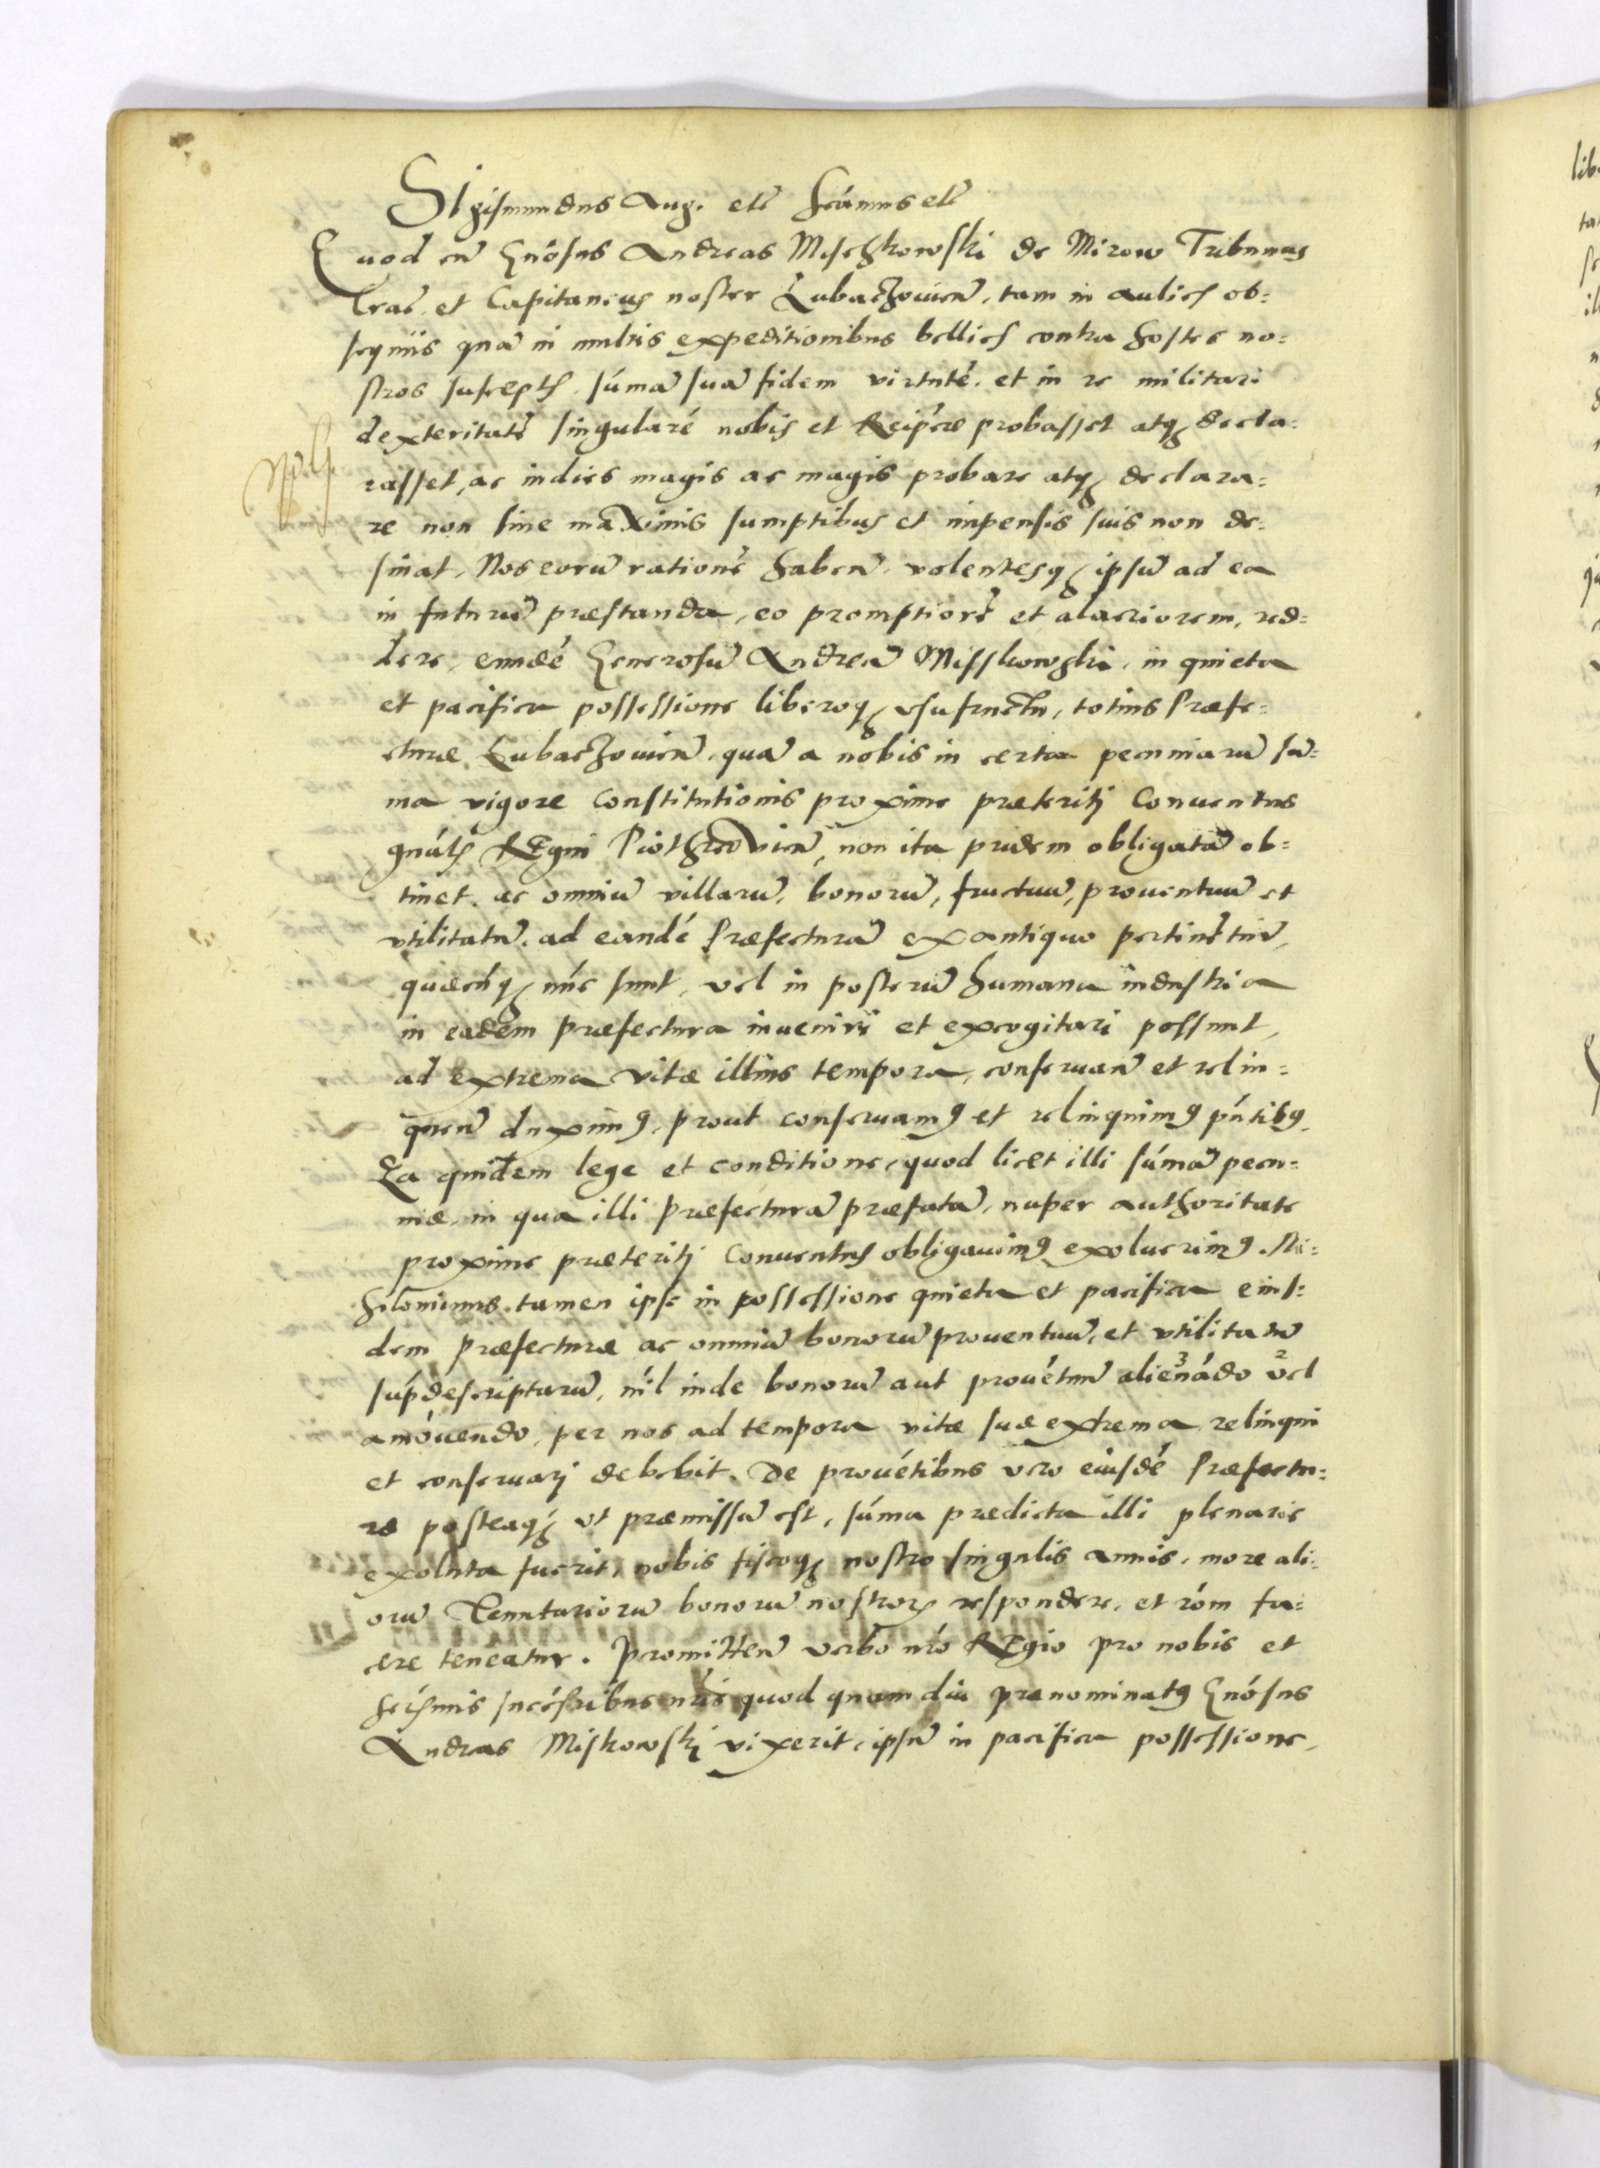 Sigismundus Aug. etc̃ Scimus etc̃
Quod cũ Gnõsus Andreas Mischkowski de Mirow Tribunus
Crac̃. et Capitaneus noster Lubaczouieñ, tam in aulics ob=
sequiis quã in multis expeditionibus bellics contra hostes no=
stros suscepts, sũmã suã fidem virtutẽ, et in re militari
dexteritatẽ singularẽ nobis et Reip̃cæ probasset atq; decla=
rasset, ac indies magis ac magis probare atq; declara=
re non sine maximis sumptibus et impensis suis non de=
sinat, Nos eorũ rationẽ habeñ. volentesq; ipsũ ad ea
in futurũ præstanda, eo promptiorẽ et alacriorem, red=
dere, eundẽ Generosũ Andreã Misskowski, in quieta
et pacifica possessione liberoq; vsufructu, totius Præfe=
cturæ Lubaczouieñ, quã a nobis in certa pecuniarũ sũ=
ma vigore Constitutionis proxime præteriti Conuentus
gnãls Regni Piothrcovieñ, non ita pridem obligatã ob=
tinet, ac omniũ villarũ, bonorũ, fructuũ, prouentuũ et
vtilitatũ, ad eandẽ Præfecturã ex antiquo pertinẽtiũ,
quæcũq; nũc sunt, vel in posterũ humana industria
in eadem præfectura inueniri et excogitari possunt,
ad extrema vitæ illius tempora, conseruañ et relin=
queñ duximus, prout conseruamus et relinquimus pñtibus,
Ea quidem lege et conditione, quod licet illi sũmã pecu=
niæ, in qua illi præfecturã præfatã, nuper authoritate
proxime præteriti Conuentus obligauimus exoluerimus. Ni=
hilominus tamen ipse in possessione quieta et pacifica eius=
dem præfecturæ ac omniũ bonorũ prouentuũ, et vtilitatũ
sup̃descriptarũ, nĩl inde bonorũ aut prouẽtuũ alienãdo 3 vel 2
amouendo, per nos ad tempora vitæ suæ extrema relinqui
et conseruari debebit. De prouẽtibus vero eiusdẽ Præfectu=
ræ posteaq; vt præmissũ est, sũma prædicta illi plenarie
exoluta fuerit, nobis fiscoq; nostro singulis annis, more ali=
orũ Tenutariorũ bonorũ nostrorum respondere, et rõm fa=
cere teneatur. Promitteñ verbo nrõ Regio pro nobis et
Serĩsmis succẽsoribus nrĩs quod quam diu prænominatus Gnõsus
Andreas Miskowski vixerit, ipsũ in pacifica possessione,